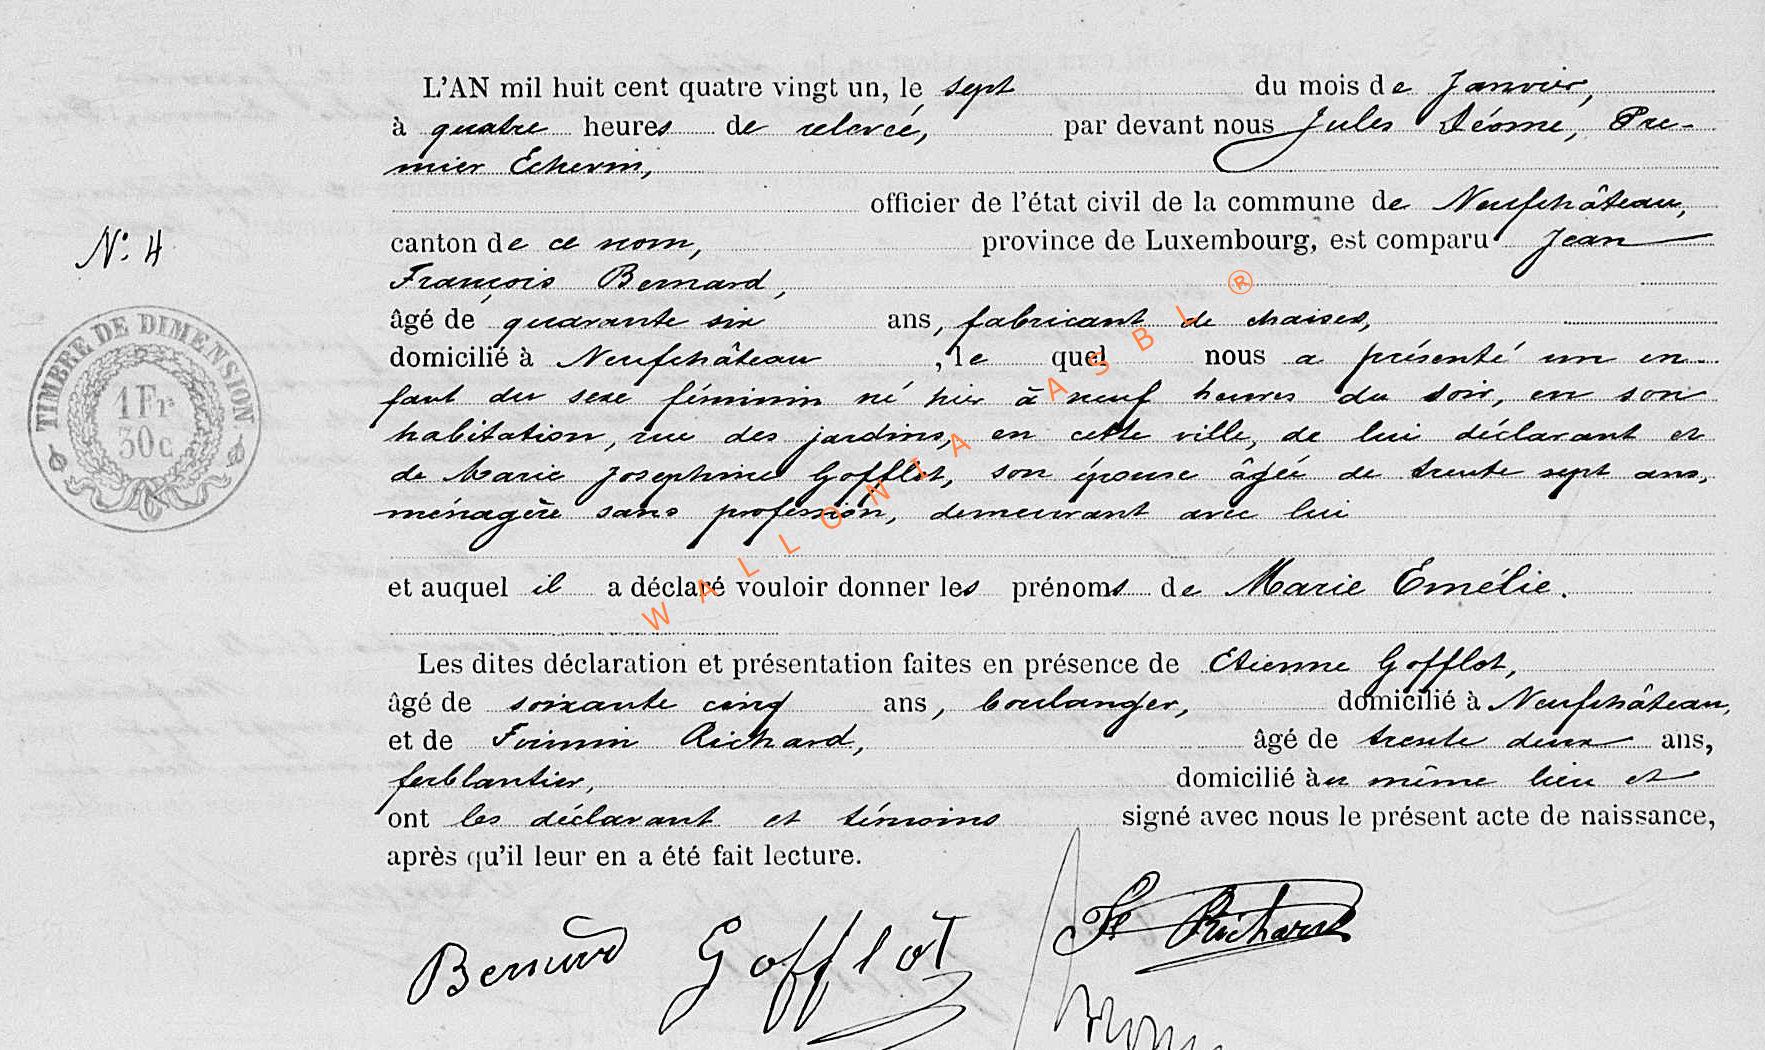 L'AN mil huit cent quatre vingt un, le sept du mois de Janvier,
à quatre heures de relevée, par devant nous Jules Déome, Pre-
mier Echevin,
officier de l'état civil de la commune de Neufchâteau,
N° 4
canton de ce nom, province de Luxembourg, est comparu Jean
François Bernard,
âgé de quarante six ans, fabricant de chaises,
domicilié à Neufchâteau, le quel nous a présenté un en-
fant du sexe féminin né hier à neuf heures du soir, en son
habitation, rue des jardins, en cette ville, de lui déclarant et
de Marie Josephine Gofflot, son épouse âgée de trente sept ans,
ménagère sans profession, demeurant avec lui
et auquel il a déclaré vouloir donner les prénoms de Marie Emélie.
Les dites déclaration et présentation faites en présence de Etienne Gofflot,
âgé de soixante cinq ans, boulanger, domicilié à Neufchâteau,
et de Firmin Richard, âgé de trente deux ans,
ferblantier, domicilié au même lieu et
ont les déclarant et témoins signé avec nous le présent acte de naissance,
après qu'il leur en a été fait lecture.
TIMBRE DE DIMENSION
1 Fr
30 c
WALLONIA ASBL ®
Bernard Gofflot Fr Richard